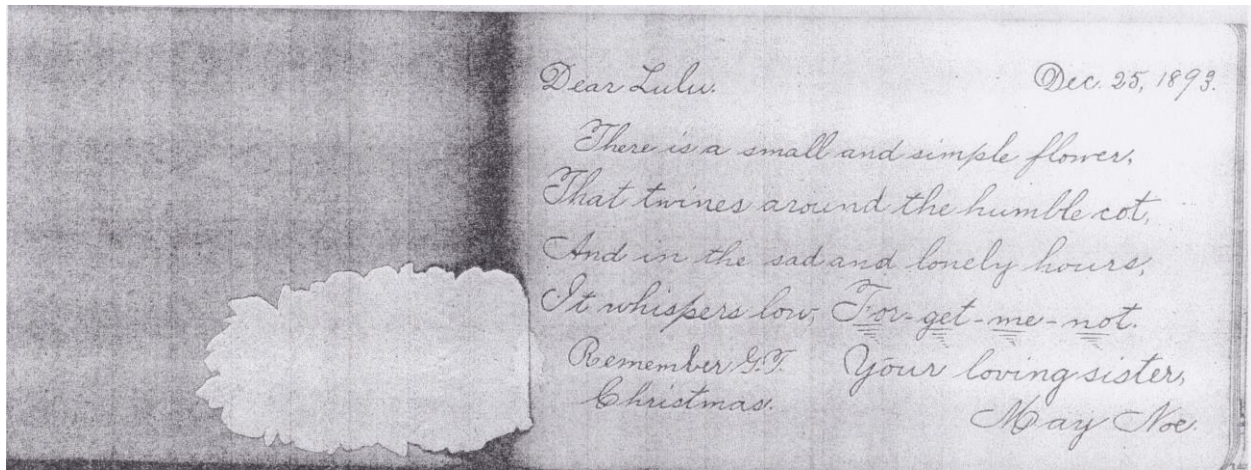 Dear Lulu.
Dec. 25, 1893.
There is a small and simple flower,
That twines around the humble cot,
And in the sad and lonely hours,
It whispers low, For-get-me-not.
Remember G.T.
Christmas.
Your loving sister,
May Noe.